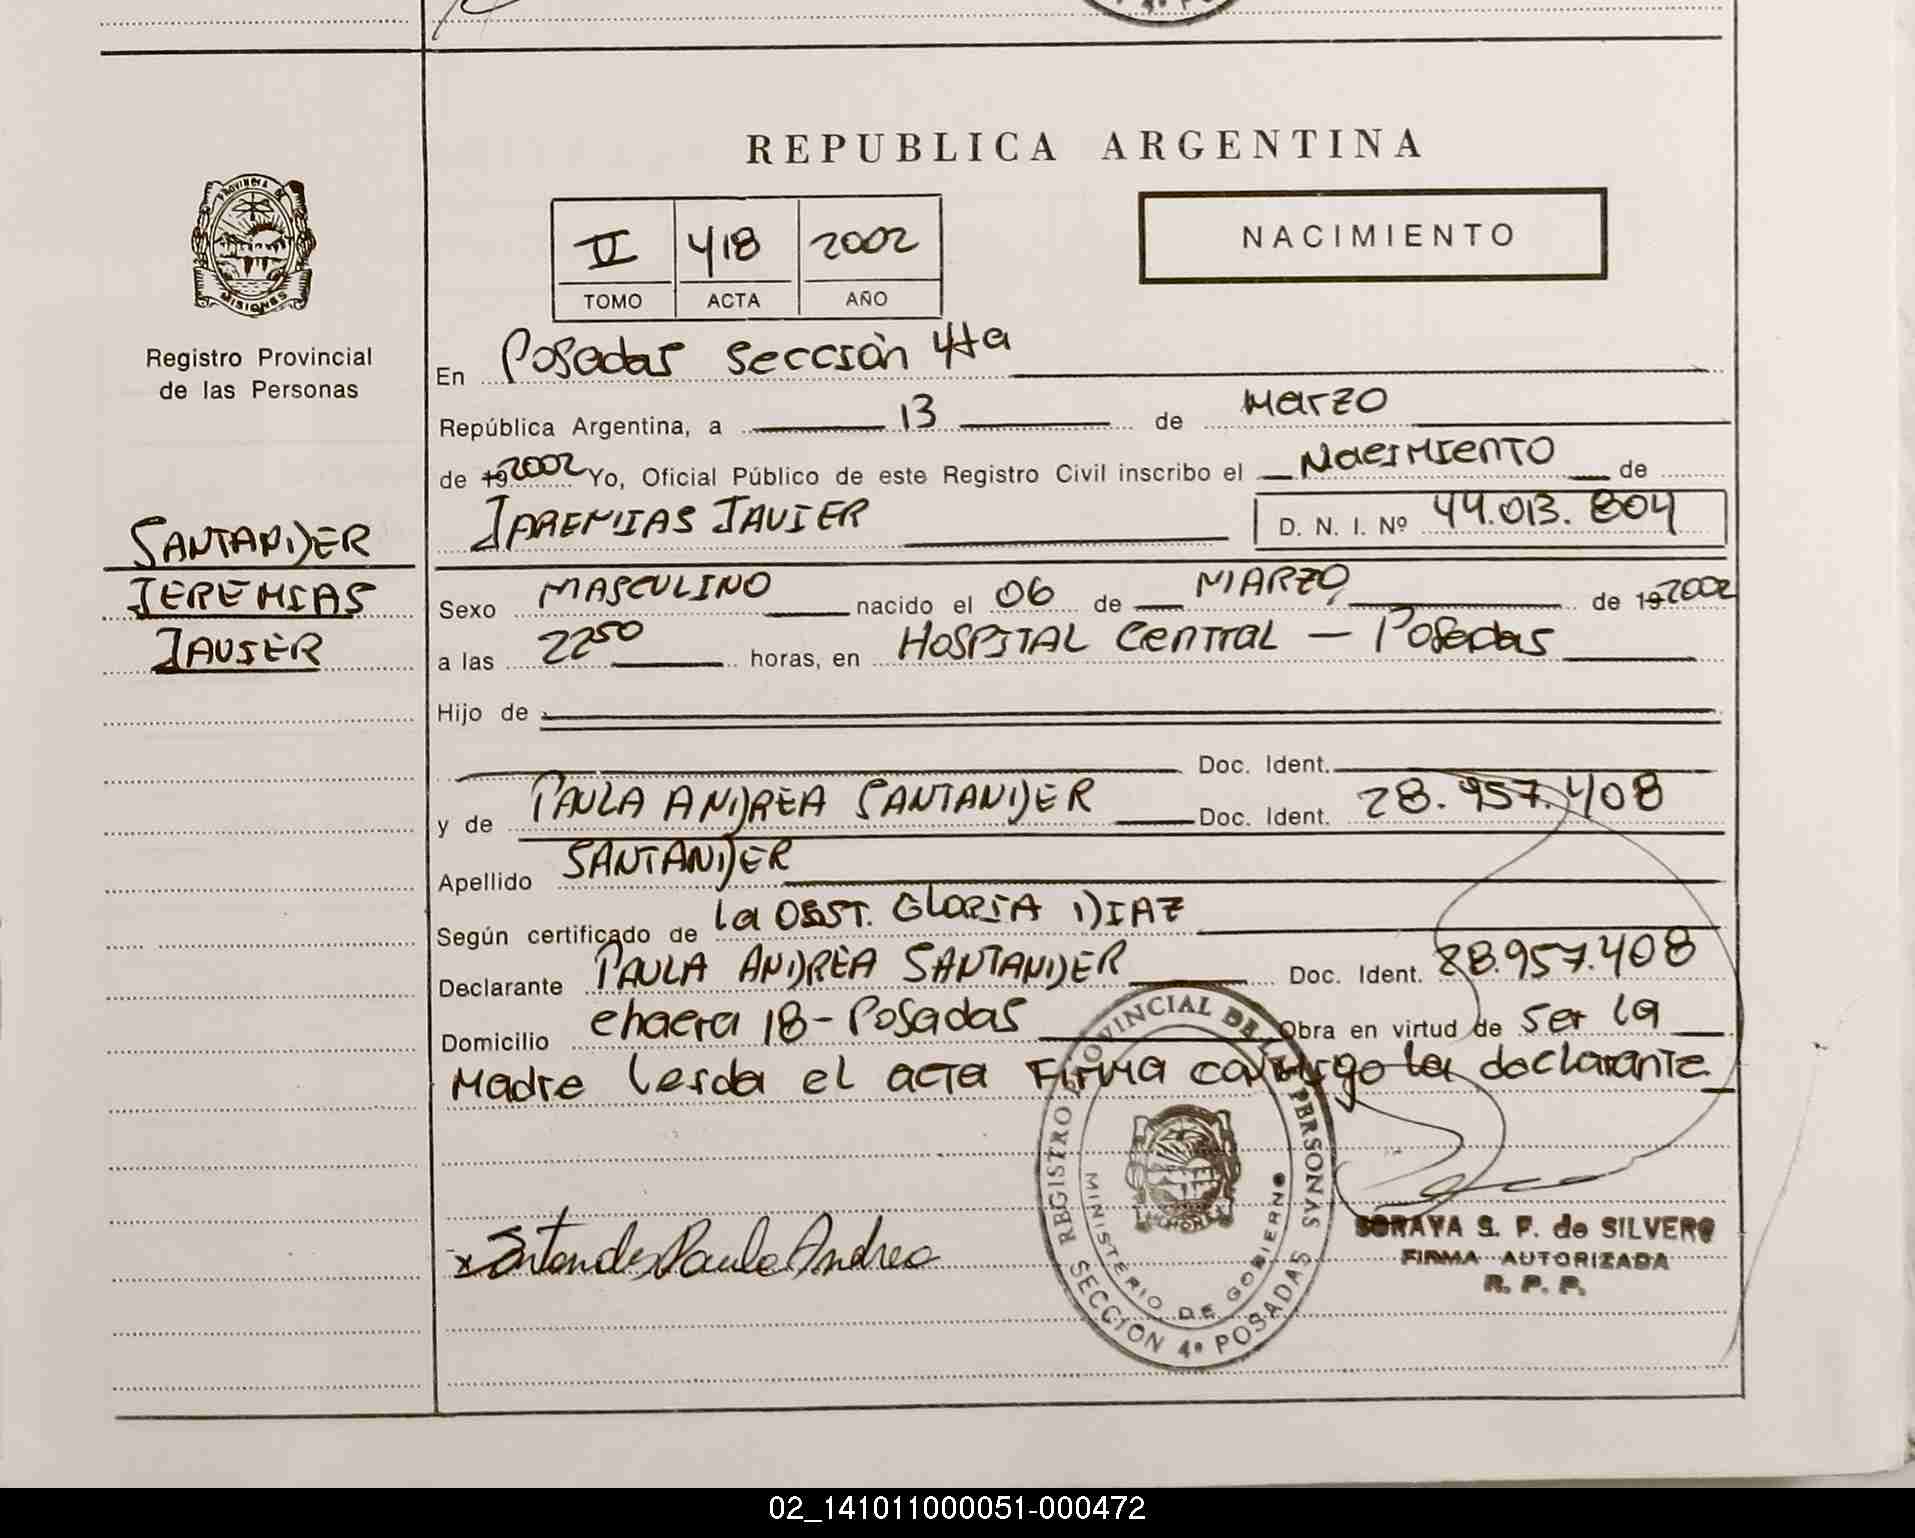 REPUBLICA ARGENTINA
PROVINCIA DE MISIONES
II 418 2002
TOMO ACTA AÑO
NACIMIENTO
Registro Provincial
de las Personas
SANTANDER
JEREMIAS
JAVIER
En Posadas Sección 4ta
República Argentina, a 13 de Marzo
de 19 2002 Yo, Oficial Público de este Registro Civil inscribo el Nacimiento de
JAREMIAS JAVIER D. N. I. Nº 44.013.804
Sexo MASCULINO nacido el 06 de MARZO de 19 2002
a las 2250 horas, en HOSPITAL Central - Posadas
Hijo de
Doc. Ident.
y de PAULA ANDREA SANTANDER Doc. Ident. 28.957.408
Apellido SANTANDER
Según certificado de la OBST. GLORIA DIAZ
Declarante PAULA ANDREA SANTANDER Doc. Ident. 28.957.408
Domicilio chacra 18 - Posadas Obra en virtud de ser la
Madre leida el acta Firma conmigo la declarante
Santander Paula Andrea
REGISTRO PROVINCIAL DE LAS PERSONAS
MINISTERIO DE GOBIERNO
SECCION 4º POSADAS
SORAYA S. F. de SILVERO
FIRMA AUTORIZADA
R. P. P.
02_141011000051-000472